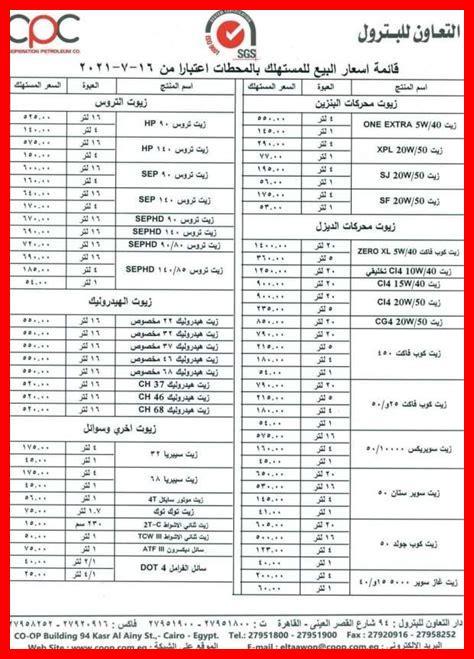 التعاون للبترول
CPC
COOPERATION PETROLEUM CO.
SGS
قائمة أسعار البيع للمستهلك بالمحطات اعتبارا من ١٦-٧-٢٠٢١
زيوت محركات البنزين
اسم المنتج العبوة السعر المستهلك
زيت ONE EXTRA 5W/40 ٤ لتر ٥٥٠.٠٠
١ لتر ١٤٥.٠٠
زيت XPL 20W/50 ٤ لتر ٢٩٠.٠٠
١ لتر ٧٧.٠٠
زيت SJ 20W/50 ٤ لتر ١٩٥.٠٠
١ لتر ٥٦.٠٠
زيت SF 20W/50 ٤ لتر ١٧٥.٠٠
١ لتر ٥٣.٠٠
زيوت محركات الديزل
زيت كوب فاكت ZERO XL 5W/40 ٢٠ لتر ١٤٠٠.٠٠
٥ لتر ٣٦٠.٠٠
زيت CI4 10W/40 تخليقي ٢٠ لتر ١٢٥٠.٠٠
زيت CI4 15W/40 ٢٠ لتر ٩٠٠.٠٠
زيت CI4 20W/50 ٢٠ لتر ٩٠٠.٠٠
٥ لتر ٢٣٥.٠٠
زيت CG4 20W/50 ٢٠ لتر ٨٥٠.٠٠
زيت كوب فاكت ٤٥٠ ٢٠ لتر ٧٩٠.٠٠
٥ لتر ٢١٥.٠٠
٤ لتر ١٨٠.٠٠
١ لتر ٥٤.٠٠
زيت كوب فاكت ٢٥و/٥٠ ٢٠ لتر ٧٩٠.٠٠
٥ لتر ٢١٥.٠٠
٤ لتر ١٨٠.٠٠
١ لتر ٥٤.٠٠
زيت سوبريكس ٥٠/١٠٠٠٠ ١٦ لتر ٥٧٥.٠٠
٤ لتر ١٦٠.٠٠
١ لتر ٤٥.٠٠
زيت سوبر ستان ٥٠ ٢٠ لتر ٦٥٠.٠٠
١٦ لتر ٥٣٠.٠٠
٤ لتر ١٤٥.٠٠
١ لتر ٤١.٠٠
زيت كوب جولد ٥٠ ٢٠ لتر ٦٠٥.٠٠
١٦ لتر ٥٠٠.٠٠
٤ لتر ١٢٣.٠٠
١ لتر ٤٠.٠٠
زيت غاز سوبر ٥٠٠٠ ١٥و/٤٠ ٤ لتر ٢٠٠.٠٠
١ لتر ٦٠.٠٠
زيوت التروس
اسم المنتج العبوة السعر المستهلك
زيت تروس ٩٠ HP ١٦ لتر ٥٢٥.٠٠
٤ لتر ١٤٠.٠٠
زيت تروس ١٤٠ HP ١٦ لتر ٥٧٥.٠٠
٤ لتر ١٥٠.٠٠
زيت تروس ٩٠ SEP ١٦ لتر ٦٠٠.٠٠
٤ لتر ١٦٠.٠٠
زيت تروس ١٤٠ SEP ١٦ لتر ٦٤٠.٠٠
٤ لتر ١٧٠.٠٠
زيت تروس ٩٠ SEPHD ١٦ لتر ٦٧٠.٠٠
زيت تروس ١٤٠ SEPHD ١٦ لتر ٦٩٠.٠٠
زيت تروس ٩٠/٨٠ SEPHD ١٦ لتر ٧٢٠.٠٠
زيت تروس ١٤٠/٨٥ SEPHD ١٦ لتر ٦٩٠.٠٠
٤ لتر ١٨٥.٠٠
١ لتر ٥٤.٠٠
زيوت الهيدروليك
زيت هيدروليك ٢٢ مخصوص ١٦ لتر ٥٥٠.٠٠
زيت هيدروليك ٣٢ مخصوص ١٦ لتر ٥٥٠.٠٠
زيت هيدروليك ٣٧ مخصوص ١٦ لتر ٥٥٠.٠٠
زيت هيدروليك ٤٦ مخصوص ١٦ لتر ٥٥٠.٠٠
زيت هيدروليك ٦٨ مخصوص ١٦ لتر ٥٥٠.٠٠
زيت هيدروليك CH 37 ١٦ لتر ٥٢٠.٠٠
زيت هيدروليك CH 46 ١٦ لتر ٥٢٠.٠٠
زيت هيدروليك CH 68 ١٦ لتر ٥٢٠.٠٠
زيوت اخري وسوائل
زيت سيبريا ٣٢ ٤ لتر ١٧٥.٠٠
١ لتر ٥٠.٠٠
زيت سيبريا ٦٨ ٤ لتر ١٧٥.٠٠
١ لتر ٤٥.٠٠
زيت موتور سايكل 4T ١ لتر ٥٦.٠٠
زيت توك توك ١.٧ لتر ٧٥.٠٠
زيت ثنائي الاشواط 2T-C ٢٣٠ سم ١٥.٠٠
زيت ثنائي الاشواط TCW III ١ لتر ٥٠.٠٠
سائل ديكسرون ATF III ١ لتر ٦٠.٠٠
سائل الفرامل DOT 4 ٢/١ لتر ٤٠.٠٠
٤/١ لتر ٢٥.٠٠
دار التعاون للبترول : ٩٤ شارع القصر العيني - القاهرة ت : ٢٧٩٥١٨٠٠ - ٢٧٩٥١٩٠٠ فاكس : ٢٧٩٢٠٩١٦ - ٢٧٩٥٨٢٥٢
CO-OP Building 94 Kasr Al Ainy St., Cairo - Egypt. Tel.: 27951800 - 27951900 Fax : 27920916 - 27958252
Web Site : www.coop.com.eg موقع على الشبكة : E-mail: eltaawon@coop.com.eg البريد الإلكتروني